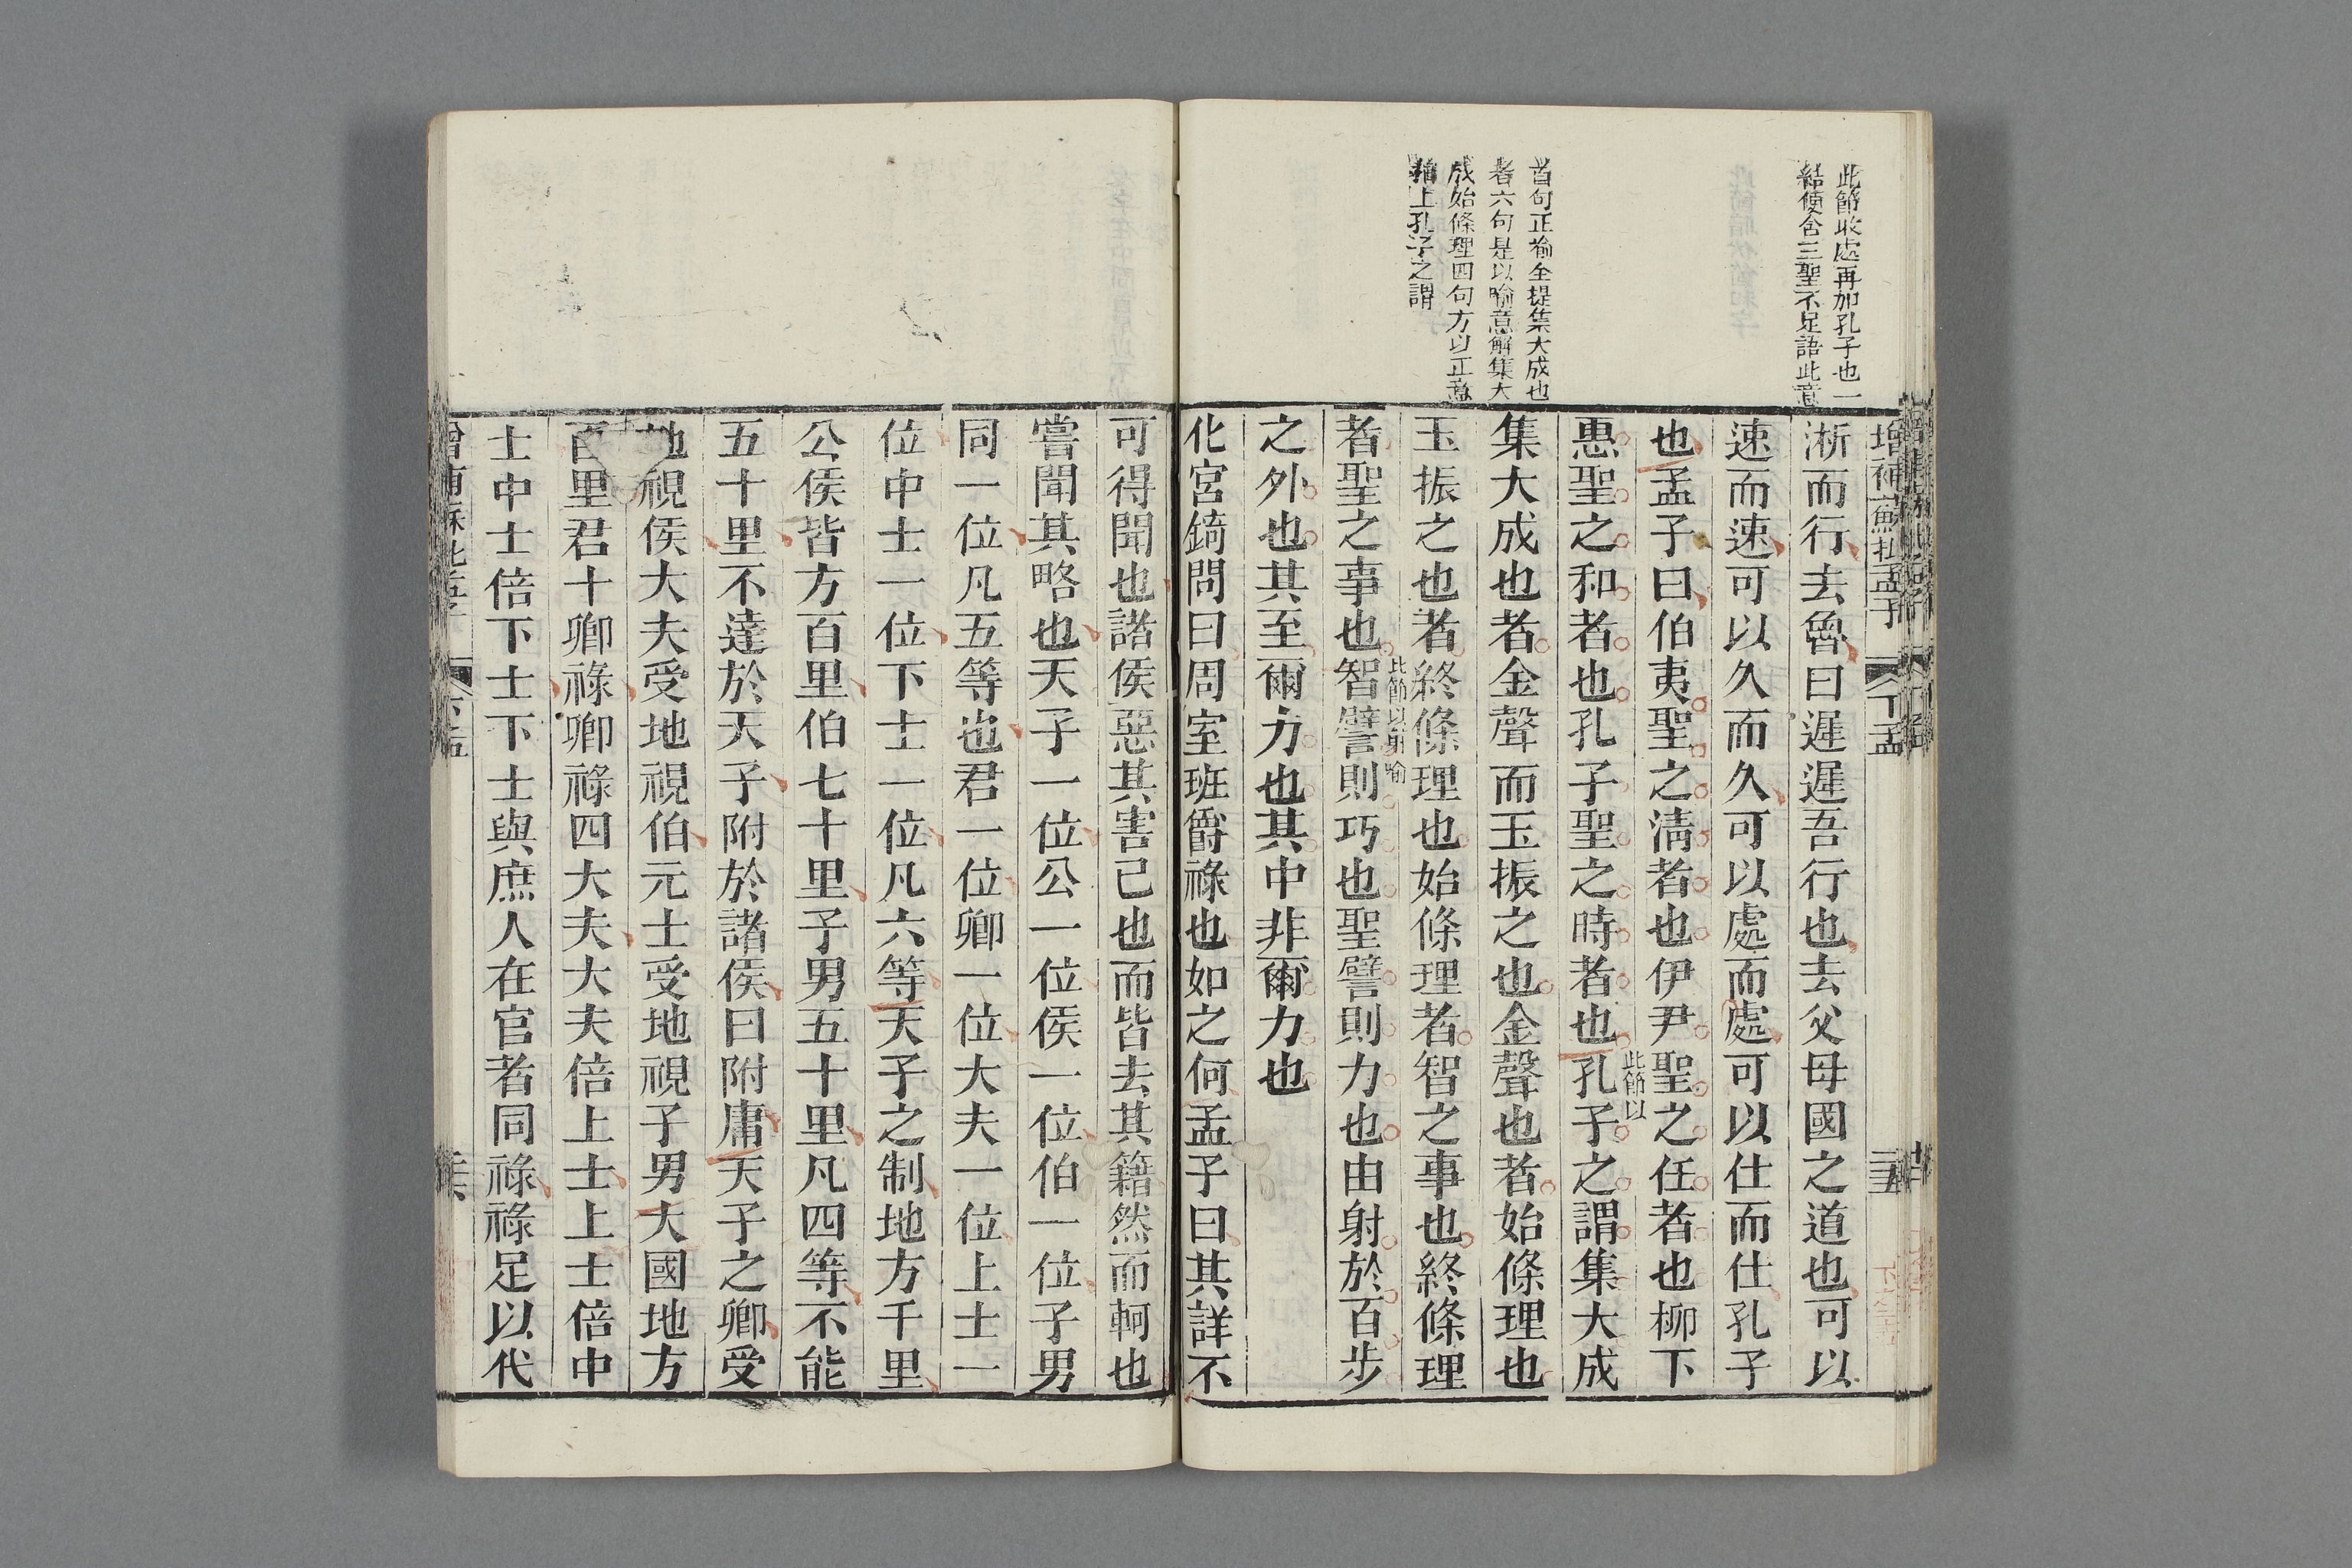 此節收處再加孔子也一
結便舍三聖不足語此意
首句正喻全提集大成也
者六句是以喻意解集大
成始條理四句方以正意
繳上孔子之謂
增補蘇批孟子 下孟
淅而行去魯曰遲遲吾行也去父母國之道也可以
速而速可以久而久可以處而處可以仕而仕孔子
也孟子曰伯夷聖之淸者也伊尹聖之任者也柳下
此節以
惠聖之和者也孔子聖之時者也孔子之謂集大成
集大成也者金聲而玉振之也金聲也者始條理也
玉振之也者終條理也始條理者智之事也終條理
此節以射喻
者聖之事也智譬則巧也聖譬則力也由射於百步
之外也其至爾力也其中非爾力也
化宮錡問曰周室班爵祿也如之何孟子曰其詳不
可得聞也諸侯惡其害己也而皆去其籍然而軻也
嘗聞其略也天子一位公一位侯一位伯一位子男
同一位凡五等也君一位卿一位大夫一位上士一
位中士一位下士一位凡六等天子之制地方千里
公侯皆方百里伯七十里子男五十里凡四等不能
五十里不達於天子附於諸侯曰附庸天子之卿受
地視侯大夫受地視伯元士受地視子男大國地方
百里君十卿祿卿祿四大夫大夫倍上士上士倍中
士中士倍下士下士與庶人在官者同祿祿足以代